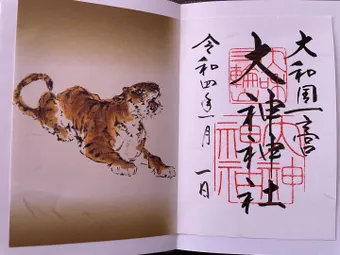 大和国一之宮
大神神社
令和四年一月一日